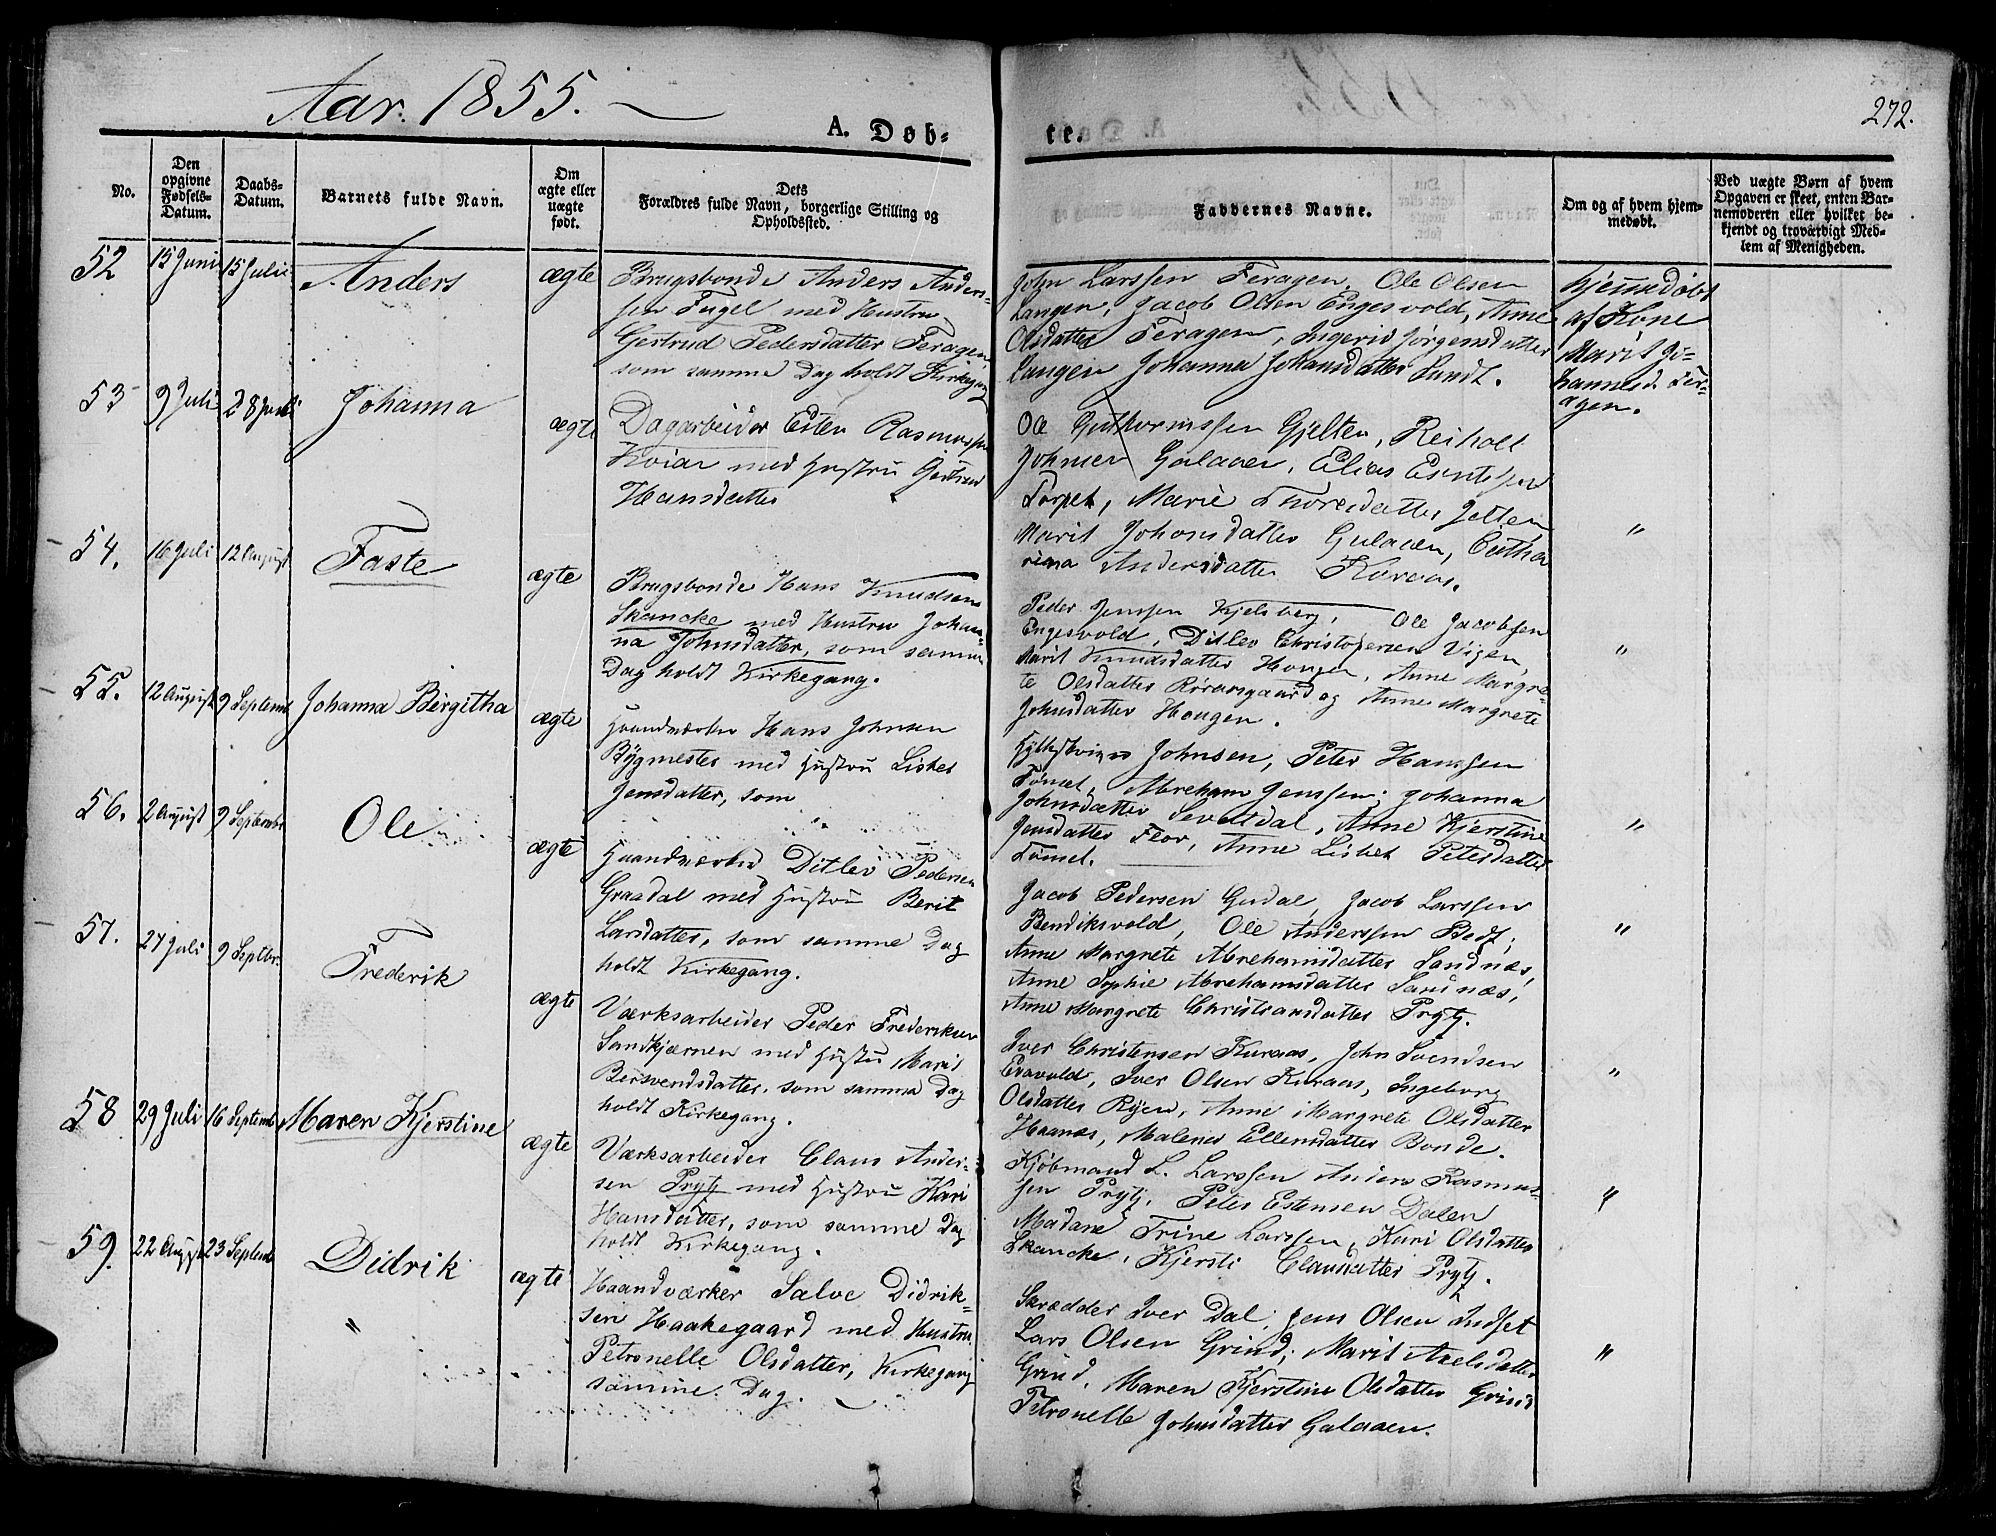 Aar. 1855.
272.
A. Døb-
te.
No.
Den opgivne Fødsels-Datum.
Daabs-Datum.
Barnets fulde Navn.
Om ægte eller uægte født.
Dets Forældres fulde Navn, borgerlige Stilling og Opholdssted.
Faddernes Navne.
Om og af hvem hjemmedøbt.
Ved uægte Børn af hvem Opgaven er skeet, enten Barnemoderen eller hvilket bekjendt og troværdigt Medlem af Menigheden.
52 15 Juni 15 Julii Anders ægte
Brugsbonde Anders Anders-
sen Fugel med Hustru
Gertrud Pedersdatter Feragen
som samme Dag holdt Kirkegang
John Larssen Feragen, Ole Olsen
Langen, Jacob Olsen Engesvold, Anne
Olsdatter Feragen, Ingerid Jørgensdatter
Langen Johanna Johansdatter Sundt.
Hjemmedøbt
af Kone
Marit Jo-
hannesd. Fer-
agen.
53 9 Juli 28 Juli Johanna ægte
Dagarbeider Esten Rasmussen
Kvian med Hustru Gertrud
Hansdatter
Ole Guthormssen Gjelten, Reiholt
Johnsen Galaaen, Elias Estensen
Torpet, Marie Thoresdatter Jelten
Marit Johansdatter Galaaen, Catha
rina Andersdatter Kuraas.
"
54. 16 Juli 12 August Faste ægte
Brugsbonde Hans Knudsen
Skancke med Hustru Johan-
na Johnsdatter, som samme
Dag holdt Kirkegang.
Peder Jenssen Kjelsberg, Ole Jacobsen
Engesvold, Ditlev Christophersen Vigen,
Marit Knudsdatter Hougen, Anne Margre-
te Olsdatter Røraasgaard og Anne Margrete
Johnsdatter Hougen.
"
55. 12 August 9 Septemb Johanna Bergitha ægte
Haandværker Hans Johnsen
Bygmester med Hustru Lisbet
Jensdatter, som
Johnsen, Peter Hanssen
Tønset, Abraham Jenssen, Johanna
Johnsdatter Sevatdal, Anne Kjerstine
Jensdatter Floor, Anne Lisbet Petersdatter
Tønset.
"
56. 2 August 9 Septembr Ole ægte
Haandværker Ditlev Pedersen
Graadal med Hustru Berit
Larsdatter, som samme Dag
holdt Kirkegang.
Jacob Pedersen Grødal, Jacob Larssen
Bendiksvold, Ole Anderssen Bodt;
Anne Margrete Abrahamsdatter Sandnæs,
Anne Sophie Abrahamsdatter Sandnæs,
Anne Margrete Christiansdatter Prytz.
"
57. 27 Juli 9 Septbr. Frederik ægte
Værksarbeider Peder Frederiksen
Sandkjærnen med Hustru Marit
Bersvendsdatter, som samme Dag
holdt Kirkegang.
Iver Christensen Kuraas, John Svendsen
Evavold, Iver Olsen Kuraas, Ingeborg
Olsdatter Ryen, Anne Margrete Olsdatter
Haanæs, Malene Ellensdatter Bonde.
"
58 29 Juli 16 Septemb Maren Kjerstine ægte
Værksarbeider Claus Ander-
sen Prytz med Hustru Kari
Hansdatter, som samme Dag
holdt Kirkegang.
Kjøbmand L. Larssen Anders Rasmus-
sen Prytz, Peter Estensen Dalen
Madame Trine Larssen, Kari Olsdatter
Skancke, Kjersti Clausdatter Prytz.
"
59. 22 August 23 Septemb Didrik ægte
Haandværker Salve Didrik-
sen Haakegaard med Hustru
Petronelle Olsdatter, Kirkegang
samme Dag.
Skrædder Iver Dal, Jens Olsen Indset
Lars Olsen Grind; Marit Axelsdatter
Grind, Maren Kjerstine Olsdatter Grind
Petronelle Johnsdatter Galaaen.
"
"